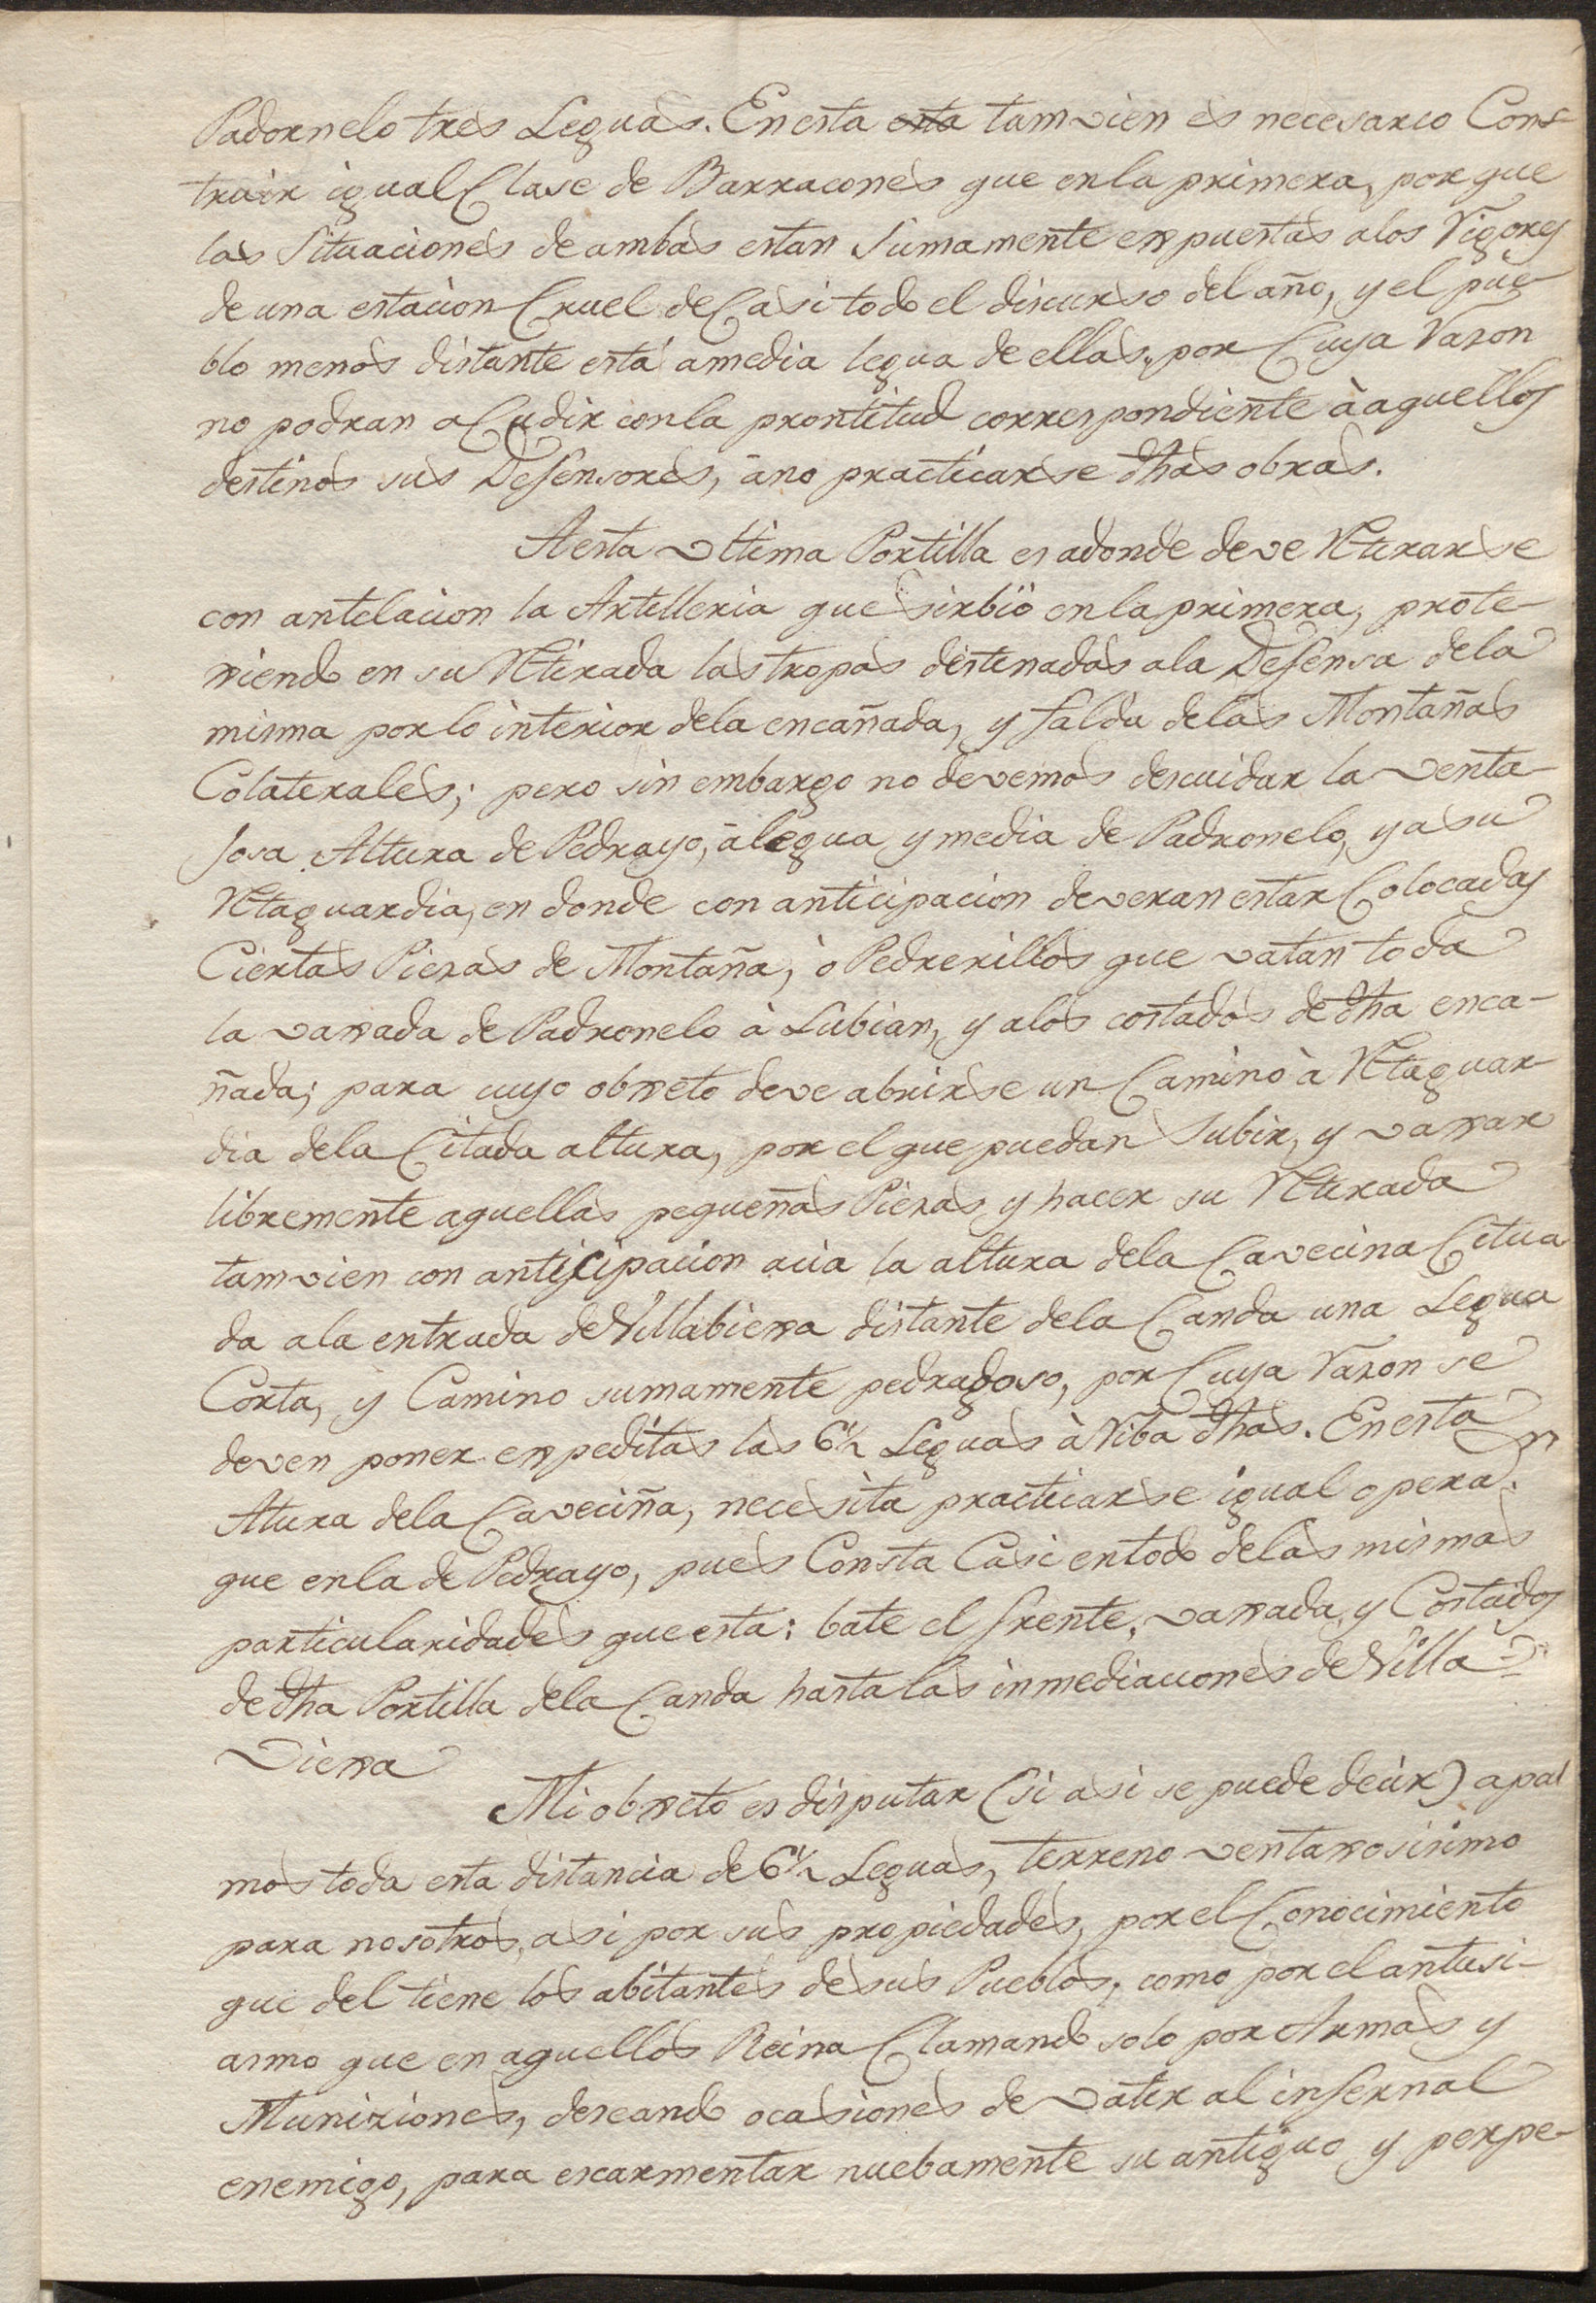 Padornelo tres Leguas. En esta esta tamvien es necesario Cons-
truir igual Clase de Barracones que en la primera, por que
las Situaciones de ambas estan Sumamente expuestas a los Rigores
de una estacion Cruel de Casi todo el discurso del año, y el pue-
blo menos distante está a media legua de ellas, por Cuya Razon
no podran acudir con la prontitud correspondiente à aquellos
destinos sus Defensores, à no practicarse dhas obras.
A esta vltima Portilla es adonde deve Retirarse
con antelacion la Artilleria que sirbiò en la primera, prote-
xiendo en su Retirada las tropas destinadas a la Defensa de la
misma por lo interior de la encañada, y falda de las Montañas
Colaterales; pero sin embargo no devemos descuidar la venta-
josa Altura de Pedrayo, à legua y media de Padronelo, y a su
Retaguardia, en donde con anticipacion deveran estar Colocadas
Ciertas Piezas de Montaña, ò Pedrerillos que vatan toda
la vaxada de Padronelo à Lubian, y a los costados de dha enca-
ñada; para cuyo obxeto deve abrirse un Camino à Retaguar-
dia de la Citada altura, por el que puedan Subir, y vaxar
libremente aquellas pequeñas Piezas y hacer su Retirada
tamvien con anticipacion acia la altura de la Cavecina Citua
da a la entrada de Villabiexa distante de la Canda una Legua
Corta, y Camino sumamente pedragoso, por Cuya Razon se
deven poner expeditas las 6½ Leguas à Riba dhas. En esta
Atura de la Caveciña, necesita practicarse igual opera.n
que en la de Pedrayo, pues Consta Casi en todo de las mismas
particularidades que esta: bate el frente, vaxada, y Costados
de dha Portilla de la Canda hasta las inmediaciones de Villa-
viexa
Mi obxeto es disputar (si asi se puede decir) a pal
mos toda esta distancia de 6½ Leguas, terreno ventaxosisimo
para nosotros, asi por sus propiedades, por el Conocimiento
que del tiene los abitantes de sus Pueblos, como por el antusi-
asmo que en aquellos Reina Clamando solo por Armas y
Muniziones, deseando ocasiones de vatir al infernal
enemigo, para escarmentar nuebamente su antiguo y perpe-